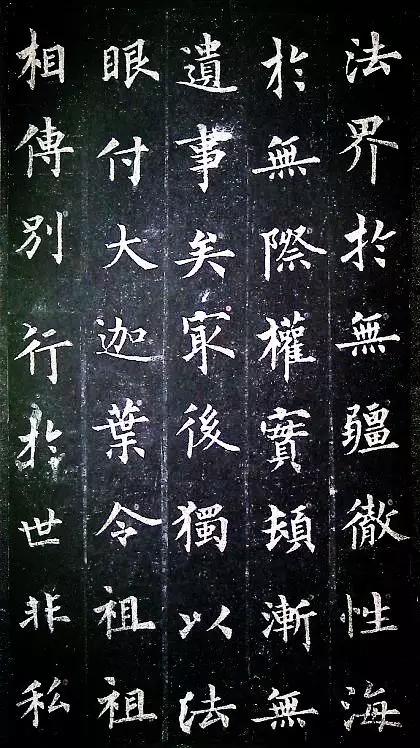 法界於無疆徹性海
於無際權實頓漸無
遺事矣冣後獨以法
眼付大迦葉令祖祖
相傳別行於世非私